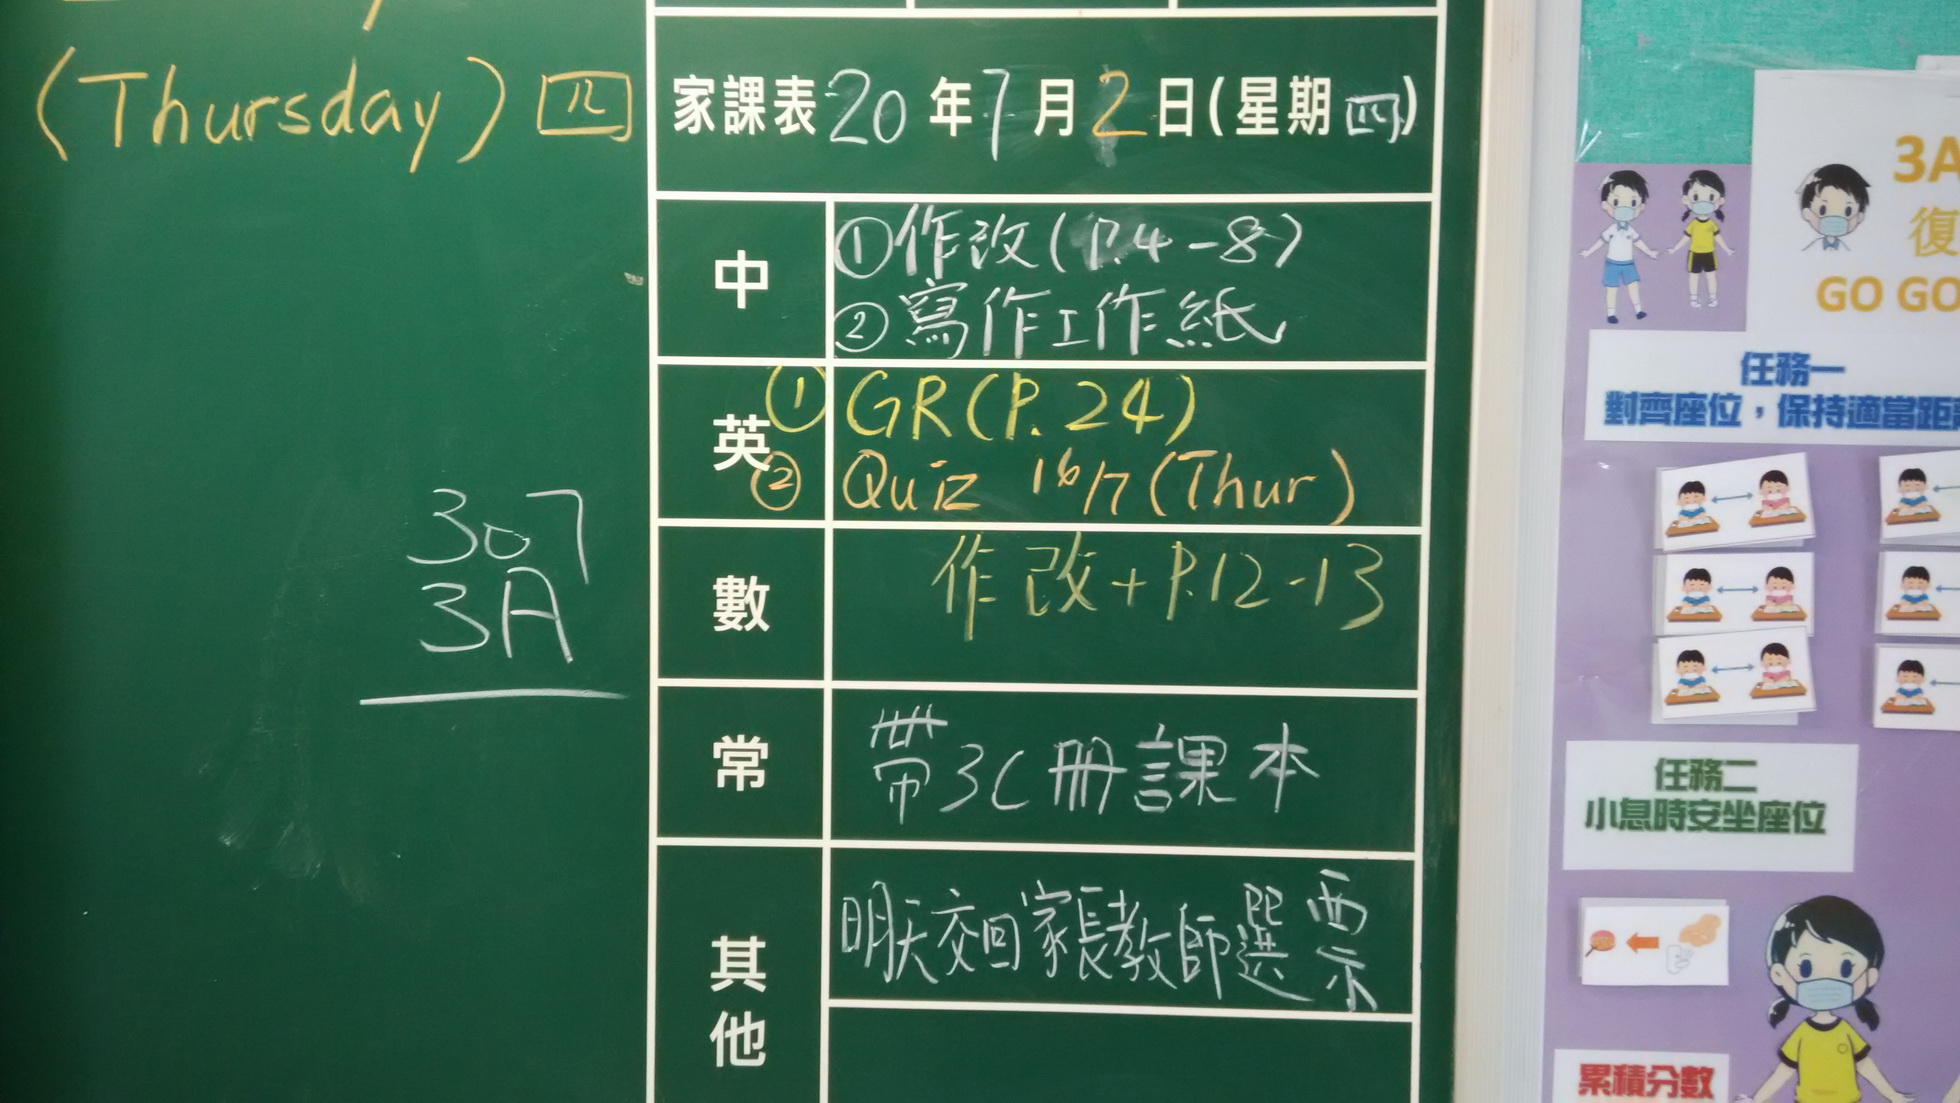 (Thursday) 四
家課表 20 年 7 月 2 日(星期四)
中
①作改(P.4-8)
②寫作工作紙
英
① GR(P.24)
② Quiz 16/7(Thur)
數
作改+P.12-13
常
帶3C冊課本
其他
明天交回家長教師選票
307
3A
3A
復
GO GO
任務一
對齊座位，保持適當距
任務二
小息時安坐座位
累積分數